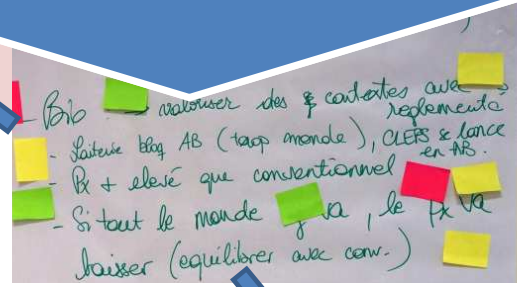 - Bio → valoriser des contextes avec
reglements
- Laiterie bloq AB (trop monde), CLEPS se lance
en AB.
- Px + elevé que conventionnel
- Si tout le monde y va, le px va
baisser (equilibrer avec conv.)